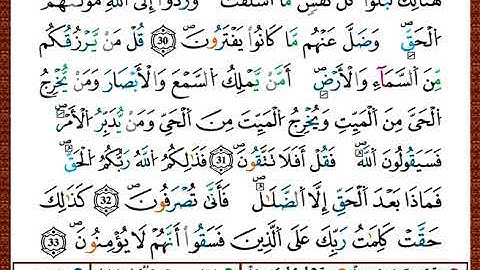 هُنَالِكَ تَبْلُوا۟ كُلُّ نَفْسٍ مَّا أَسْلَفَتْ ۚ وَرُدُّوا۟ إِلَى اللَّهِ مَوْلَىٰهُمُ
الْحَقِّ ۖ وَضَلَّ عَنْهُم مَّا كَانُوا۟ يَفْتَرُونَ ۝30 قُلْ مَن يَرْزُقُكُم
مِّنَ السَّمَآءِ وَالْأَرْضِ أَمَّن يَمْلِكُ السَّمْعَ وَالْأَبْصَارَ وَمَن يُخْرِجُ
الْحَىَّ مِنَ الْمَيِّتِ وَيُخْرِجُ الْمَيِّتَ مِنَ الْحَىِّ وَمَن يُدَبِّرُ الْأَمْرَ ۚ
فَسَيَقُولُونَ اللَّهُ ۚ فَقُلْ أَفَلَا تَتَّقُونَ ۝31 فَذَٰلِكُمُ اللَّهُ رَبُّكُمُ الْحَقُّ ۖ
فَمَاذَا بَعْدَ الْحَقِّ إِلَّا الضَّلَـٰلُ ۖ فَأَنَّىٰ تُصْرَفُونَ ۝32 كَذَٰلِكَ
حَقَّتْ كَلِمَتُ رَبِّكَ عَلَى الَّذِينَ فَسَقُوٓا۟ أَنَّهُمْ لَا يُؤْمِنُونَ ۝33